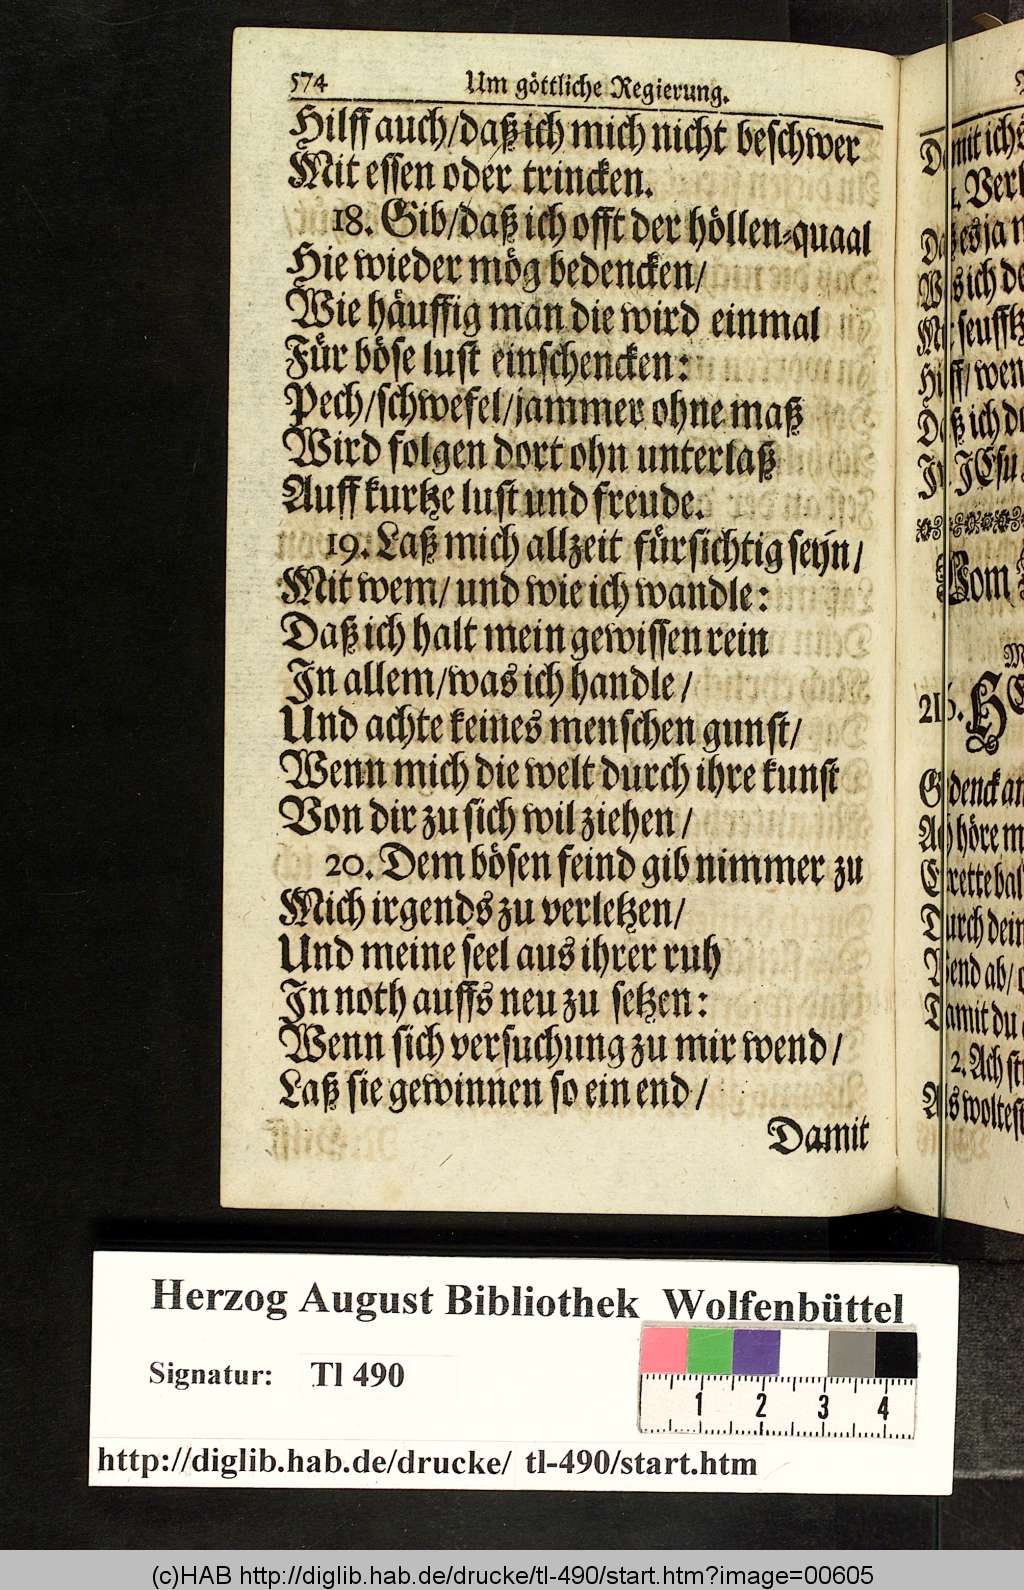 574 Um göttliche Regierung.
Hilff auch/daß ich mich nicht beschwer
Mit essen oder trincken.
18. Gib/daß ich offt der höllen-quaal
Hie wieder mög bedencken/
Wie häuffig man die wird einmal
Für böse lust einschencken:
Pech/schwefel/jammer ohne maß
Wird folgen dort ohn unterlaß
Auff kurtze lust und freude.
19. Laß mich allzeit fürsichtig seyn/
Mit wem/ und wie ich wandle:
Daß ich halt mein gewissen rein
In allem/was ich handle/
Und achte keines menschen gunst/
Wenn mich die welt durch ihre kunst
Von dir zu sich wil ziehen/
20. Dem bösen feind gib nimmer zu
Mich irgends zu verletzen/
Und meine seel aus ihrer ruh
In noth auffs neu zu setzen:
Wenn sich versuchung zu mir wend/
Laß sie gewinnen so ein end/
Damit
Herzog August Bibliothek Wolfenbüttel
Signatur: Tl 490
1 2 3 4
http://diglib.hab.de/drucke/ tl-490/start.htm
(c)HAB http://diglib.hab.de/drucke/tl-490/start.htm?image=00605